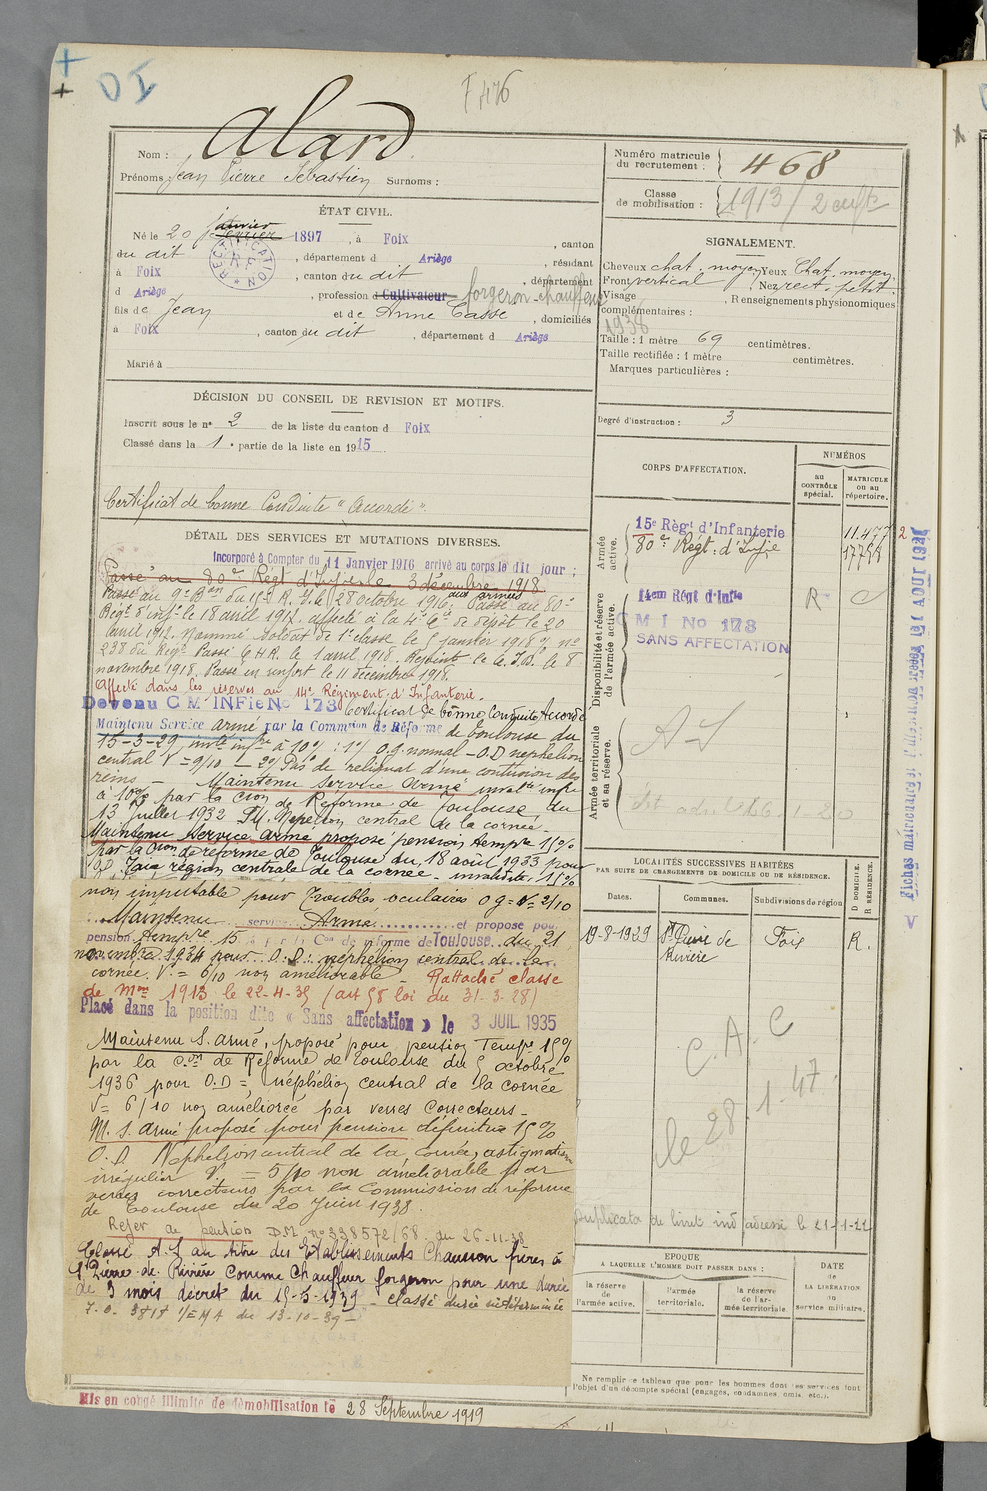 DI
F 476
Nom : Alard
Prénoms Jean Pierre Sébastien Surnoms :
Numéro matricule du recrutement : 468
Classe de mobilisation : 1913 / 2 enfts
ÉTAT CIVIL.
Né le 20 janvier février 1897, à Foix, canton
du dit, département d Ariège, résidant
à Foix, canton du dit, département
d Ariège, profession d Cultivateur forgeron-chauffeur
fils de Jean et de Anne Casse, domiciliés
à Foix, canton du dit, département d Ariège
Marié à
RECTIFICATION
SIGNALEMENT.
Cheveux chat. moyen Yeux Chat. moyen
Front vertical Nez rect. petit.
Visage, Renseignements physionomiques
complémentaires :
1938
Taille : 1 mètre 69 centimètres.
Taille rectifiée : 1 mètre centimètres.
Marques particulières :
DÉCISION DU CONSEIL DE REVISION ET MOTIFS.
Inscrit sous le n° 2 de la liste du canton d Foix
Classé dans la 1e partie de la liste en 1915
Certificat de bonne Conduite "Accordé"
Degré d'instruction : 3
DÉTAIL DES SERVICES ET MUTATIONS DIVERSES.
Incorporé à Compter du 11 Janvier 1916 arrivé au corps le dit jour ;
Passé au 80e Régt d'Infie le 3 décembre 1918
Passé au 9e Bon du 15e R.I. le 28 octobre 1916. aux armées Passé au 80e
Régt d'infie le 18 avril 1917. affecté à la 4e Cie de dépôt le 20
avril 1917. Nommé Soldat de 1e classe le 5 janvier 1918 O/ n°
238 du Régt Passé C.H.R. le 1 avril 1918. Rejoint le C.I.D. le 8
novembre 1918. Passé en renfort le 11 décembre 1918.
Affecté dans les réserves au 14e Régiment d'Infanterie.
Certificat de bonne Conduite Accordé
Devenu C M INFie No 173
Maintenu Service armé par la Commion de Réforme de Toulouse du
15-3-29 invté infre à 10% : 1°/ O.G. normal - O.D néphélion
central V = 9/10 - 2°/ Pas de reliquat d'une contusion des
reins - Maintenu Service Armé invalté infre
à 10% par la Cion de Réforme de Toulouse, du
13 Juillet 1932 central de la cornée.
Maintenu Service armé proposé pension tempre 15%
par la Cion de réforme de Toulouse du 18 août 1933 pour
O.D. Taie région centrale de la cornée - invalidité 15%
non imputable pour Troubles oculaires O G = V = 2/10
Maintenu service Armé et proposé pour
pension tempre 15 % par la Con de réforme de Toulouse du 21
novembre 1934 pour O.D : néphélion central de la
cornée. V. = 6/10 non améliorable - Rattaché classe
de Mon 1913 le 22-4-35 (art 58 loi du 31-3-28)
Placé dans la position dite « Sans affectation » le 3 JUIL. 1935
Maintenu S. armé, proposé pour pension Tempre 15%
par la Con de Réforme de Toulouse du 5 octobre
1936 pour O.D = néphélion central de la cornée
V = 6/10 non améliorée par verres correcteurs -
M. S. armé proposé pour pension définitive 15%
O.D. Néphélion central de la cornée, astigmatisme
irrégulier V. = 5/10 non améliorable par
verres correcteurs par la Commission de réforme
de Toulouse du 20 Juin 1938.
Rejet de pension D.M. n° 338572/68 du 26-11-38
Classé A.S au titre des Etablissements Chausson frères à
St Pierre de Rivière comme chauffeur forgeron pour une durée
de 3 mois décret du 15-5-1939 - classé durée indéterminée
7.0. 3818 1/EMA du 13-10-39
Mis en congé illimité de démobilisation le 28 Septembre 1919
CORPS D'AFFECTATION.
NUMÉROS
au CONTRÔLE spécial.
MATRICULE ou au répertoire.
Armée active.
15e Régt d'Infanterie
80e Régt d'Infie
11.477 2
Disponibilité et réserve de l'armée active.
14em Régt d'Infie
C M I No 173
SANS AFFECTATION
R C
Armée territoriale et sa réserve.
A-S
Fiches matricuaires
LOCALITÉS SUCCESSIVES HABITÉES
PAR SUITE DE CHANGEMENTS DE DOMICILE OU DE RÉSIDENCE.
Dates. Communes. Subdivisions de région
D DOMICILE. R RÉSIDENCE.
19-8-1929 St Pierre de Rivière Foix R.
C. A. C
le 28.1.47.
Duplicata du livret ind adressé le 21-1-22
EPOQUE
A LAQUELLE L'HOMME DOIT PASSER DANS :
DATE de LA LIBÉRATION du service militaire.
la réserve de l'armée active.
l'armée territoriale.
la réserve de l'armée territoriale.
Ne remplir ce tableau que pour les hommes dont les services font
l'objet d'un décompte spécial (engagés, condamnés, omis, etc.).